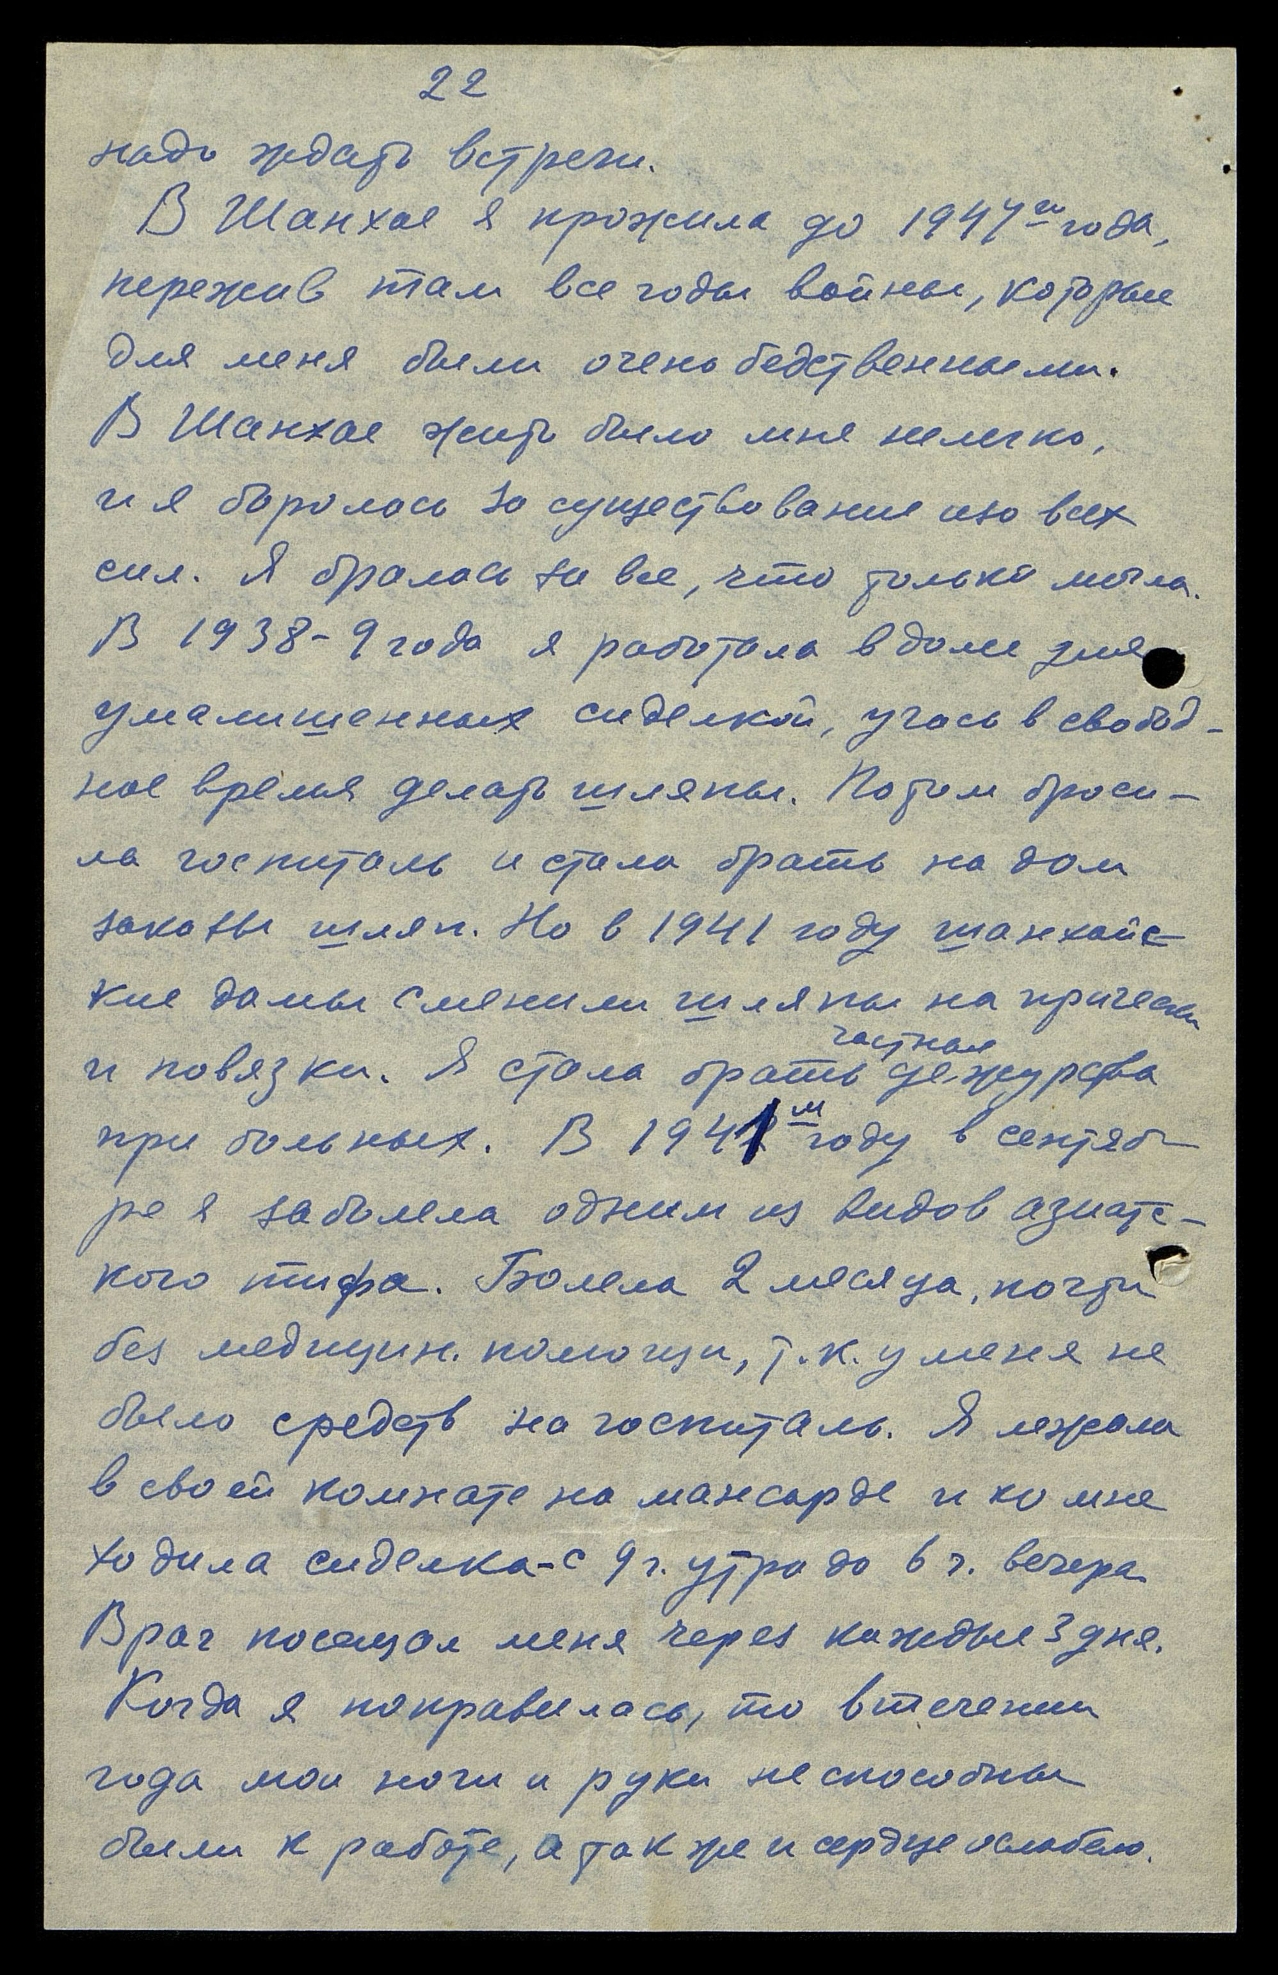 22
надо ждать встречи.
В Шанхае я прожила до 1947го года,
пережив там все годы войны, которые
для меня были очень бедственными.
В Шанхае жить было мне нелегко,
и я боролась за существование изо всех
сил. Я бралась за все, что только могла.
В 1938-9 года я работала в доме для
умалишенных сиделкой, учась в свобод-
ное время делать шляпы. Потом броси-
ла госпиталь и стала брать на дом
заказы шляп. Но в 1941 году шанхайс-
кие дамы сменили шляпы на прически
и повязки. Я стала брать частные дежурства
при больных. В 1941м году в сентяб-
ре я заболела одним из видов азиатс-
кого тифа. Болела 2 месяца, почти
без медицин. помощи, т.к. у меня не
было средств на госпиталь. Я лежала
в своей комнате на мансарде и ко мне
ходила сиделка-с 9 ч. утра до 6 ч. вечера
Врач посещал меня через каждые 3 дня.
Когда я поправилась, то в течении
года мои ноги и руки неспособны
были к работе, а так же и сердце ослабело.